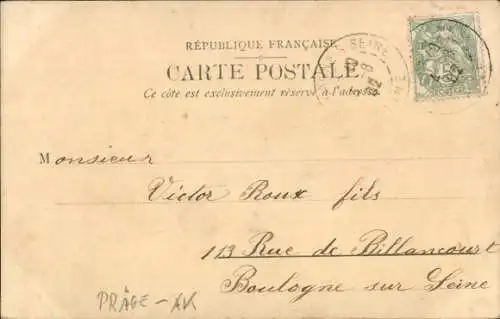 RÉPUBLIQUE FRANÇAISE
CARTE POSTALE
Ce côté est exclusivement réservé à l'adresse
Monsieur
Victor Roux fils
113 Rue de Billancourt
Boulogne sur Seine
PRÄGE-AK